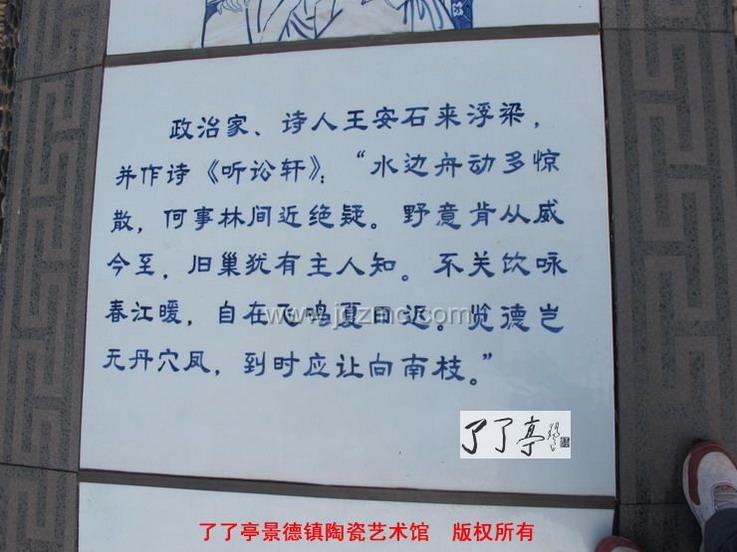 政治家、诗人王安石来浮梁，
并作诗《听讼轩》：“水边舟动多惊
散，何事林间近绝疑。野意肯从威
今至，旧巢犹有主人知。不关饮咏
春江暖，自在飞鸣夏日迟。览德岂
无丹穴凤，到时应让向南枝。”
www.jdzmc.com
了了亭
了了亭景德镇陶瓷艺术馆 版权所有